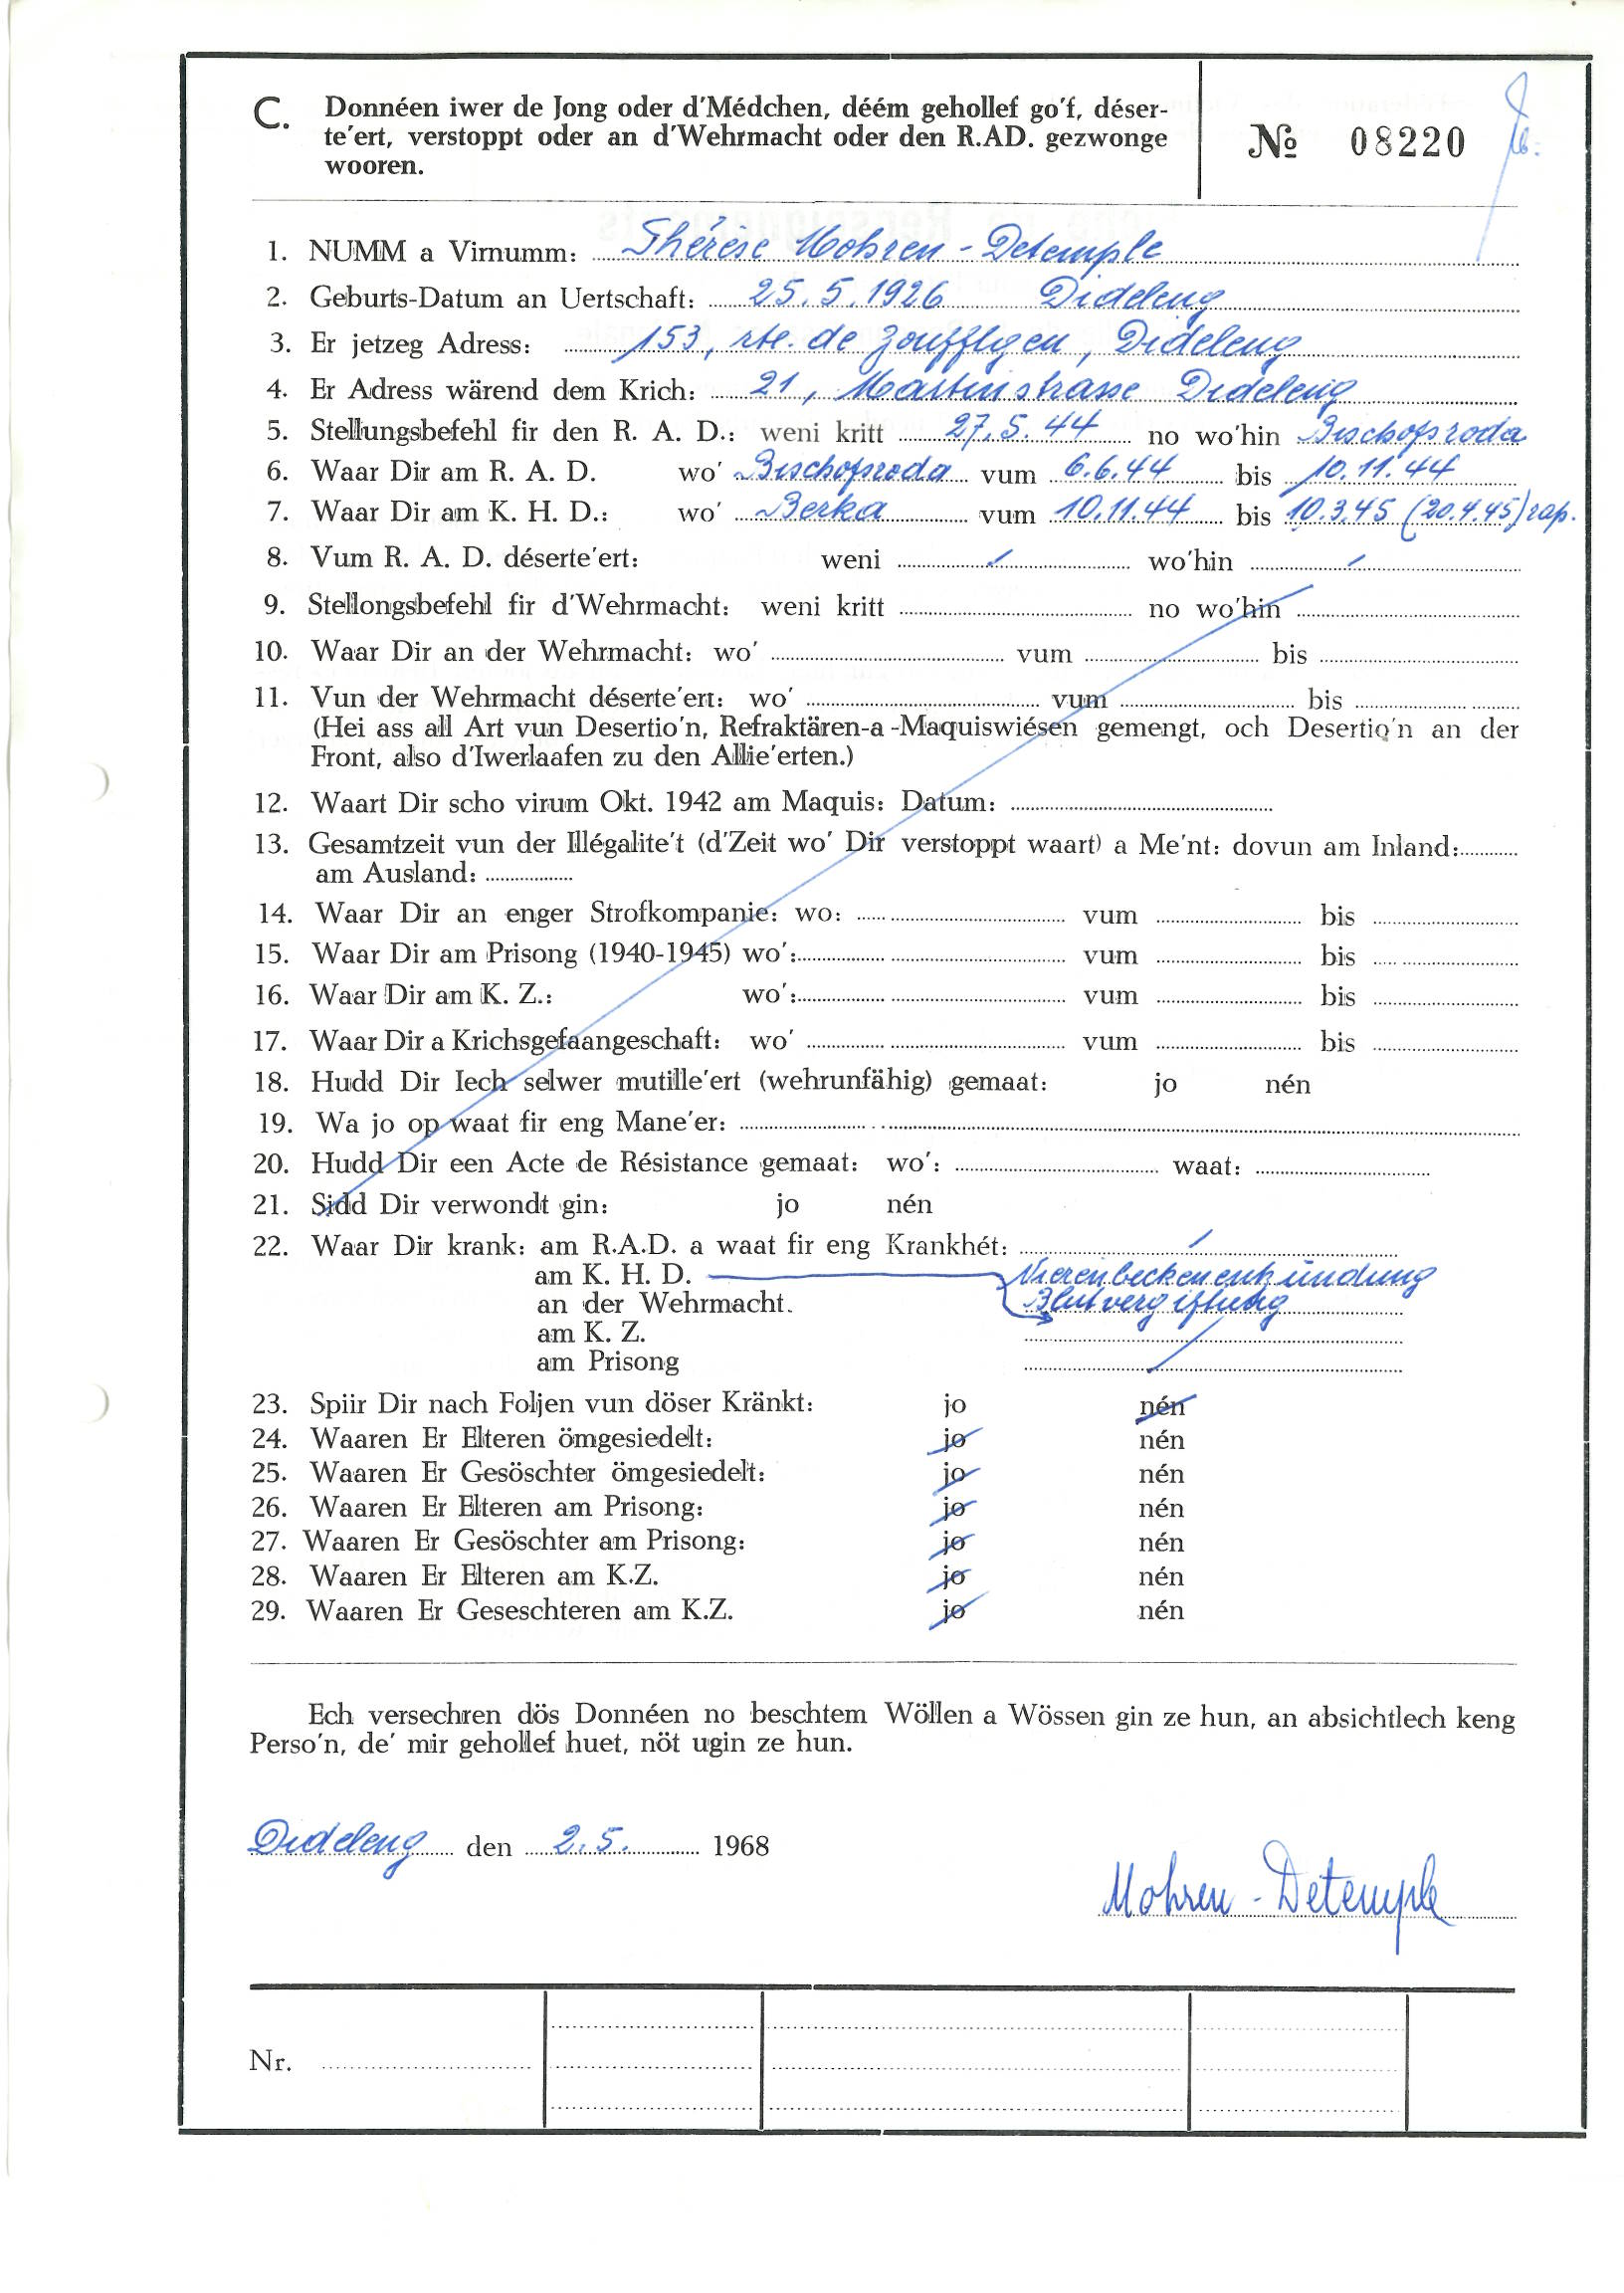 C. Donnéen iwer de Jong oder d'Médchen, déém gehollef go'f, déser-
te'ert, verstoppt oder an d'Wehrmacht oder den R.AD. gezwonge
wooren.
№ 08220
1. NUMM a Virnumm: Thérèse Mohren - Detemple
2. Geburts-Datum an Uertschaft: 25.5.1926 Dideleng
3. Er jetzeg Adress: 153, rte. de Zoufftgen, Dideleng
4. Er Adress wärend dem Krich: 21, Martinstrasse Dideleng
5. Stellungsbefehl fir den R. A. D.: weni kritt 27.5.44 no wo'hin Bischofsroda
6. Waar Dir am R. A. D. wo' Bischofsroda vum 6.6.44 bis 10.11.44
7. Waar Dir am K. H. D.: wo' Berka vum 10.11.44 bis 10.3.45 (20.4.45) rap.
8. Vum R. A. D. déserte'ert: weni / wo'hin /
9. Stellongsbefehl fir d'Wehrmacht: weni kritt no wo'hin
10. Waar Dir an der Wehrmacht: wo' vum bis
11. Vun der Wehrmacht déserte'ert: wo' vum bis
(Hei ass all Art vun Desertio'n, Refraktären-a -Maquiswiésen gemengt, och Desertio'n an der
Front, also d'Iwerlaafen zu den Allie'erten.)
12. Waart Dir scho virum Okt. 1942 am Maquis: Datum:
13. Gesamtzeit vun der Illégalite't (d'Zeit wo' Dir verstoppt waart) a Me'nt: dovun am Inland:
am Ausland:
14. Waar Dir an enger Strofkompanie: wo: vum bis
15. Waar Dir am Prisong (1940-1945) wo': vum bis
16. Waar Dir am K. Z.: wo': vum bis
17. Waar Dir a Krichsgefaangeschaft: wo' vum bis
18. Hudd Dir Iech selwer mutille'ert (wehrunfähig) gemaat: jo nén
19. Wa jo op waat fir eng Mane'er:
20. Hudd Dir een Acte de Résistance gemaat: wo': waat:
21. Sidd Dir verwondt gin: jo nén
22. Waar Dir krank: am R.A.D. a waat fir eng Krankhét: /
am K. H. D. Nierenbeckenentzündung
an der Wehrmacht. Blutvergiftung
am K. Z.
am Prisong
23. Spiir Dir nach Foljen vun döser Kränkt: jo nén
24. Waaren Er Elteren ömgesiedelt: jo nén
25. Waaren Er Gesöschter ömgesiedelt: jo nén
26. Waaren Er Elteren am Prisong: jo nén
27. Waaren Er Gesöschter am Prisong: jo nén
28. Waaren Er Elteren am K.Z. jo nén
29. Waaren Er Geseschteren am K.Z. jo nén
Ech versechren dös Donnéen no beschtem Wöllen a Wössen gin ze hun, an absichtlech keng
Perso'n, de' mir gehollef huet, nöt ugin ze hun.
Dideleng den 2.5. 1968
Mohren - Detemple
Nr.